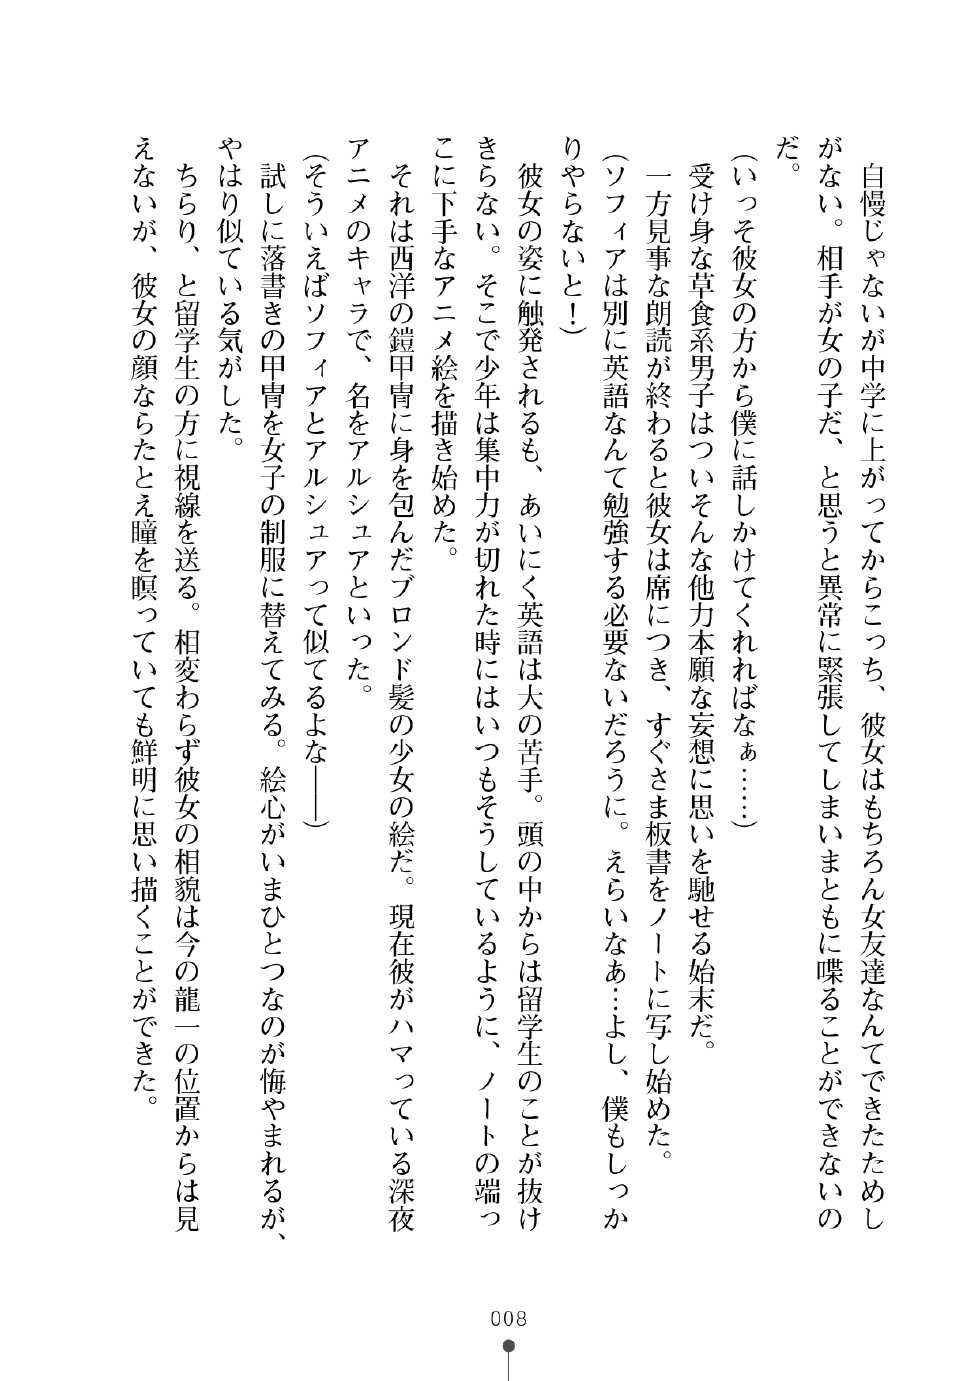 自慢じゃないが中学に上がってからこっち、彼女はもちろん女友達なんてできたためし
がない。相手が女の子だ、と思うと異常に緊張してしまいまともに喋ることができないの
だ。
（いっそ彼女の方から僕に話しかけてくれればなぁ……）
　受け身な草食系男子はついそんな他力本願な妄想に思いを馳せる始末だ。
　一方見事な朗読が終わると彼女は席につき、すぐさま板書をノートに写し始めた。
（ソフィアは別に英語なんて勉強する必要ないだろうに。えらいなあ…よし、僕もしっか
りやらないと！）
　彼女の姿に触発されるも、あいにく英語は大の苦手。頭の中からは留学生のことが抜け
きらない。そこで少年は集中力が切れた時にはいつもそうしているように、ノートの端っ
こに下手なアニメ絵を描き始めた。
　それは西洋の鎧甲冑に身を包んだブロンド髪の少女の絵だ。現在彼がハマっている深夜
アニメのキャラで、名をアルシュアといった。
（そういえばソフィアとアルシュアって似てるよな――）
　試しに落書きの甲冑を女子の制服に替えてみる。絵心がいまひとつなのが悔やまれるが、
やはり似ている気がした。
　ちらり、と留学生の方に視線を送る。相変わらず彼女の相貌は今の龍一の位置からは見
えないが、彼女の顔ならたとえ瞳を瞑っていても鮮明に思い描くことができた。
008